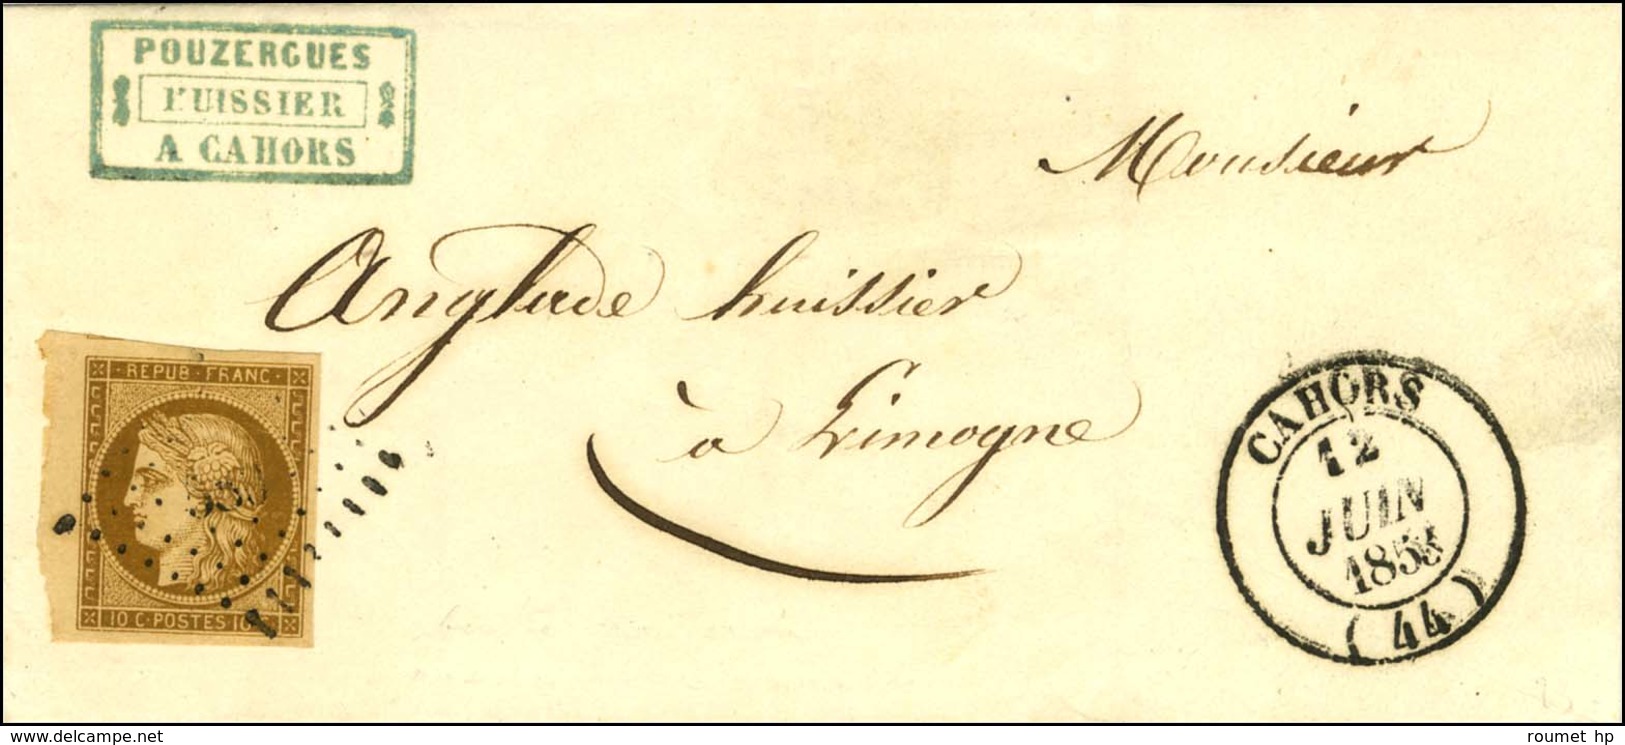 POUZERGUES
HUISSIER
A CAHORS
Monsieur
Anglade huissier
à Limogne
REPUB · FRANC ·
10 C · POSTES 10
CAHORS
12
JUIN
1853
(44)
roumet hp